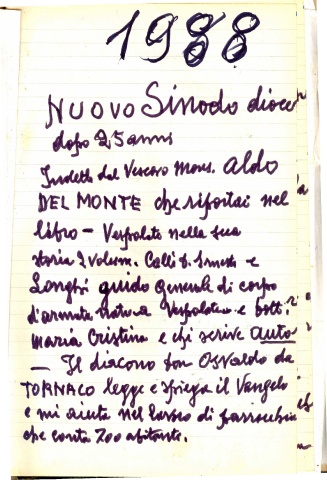 1988
NUOVO Sinodo dioce
dopo 25 anni
Indetto dal Vescovo Mons. Aldo
DEL MONTE che riportai nel
libro - Vespolate nella sua
storia 2 Volum. Calli D. Ernesto e
Longhi guido generale di corpo
d'armata nativo Vespolate e dott.
Maria Cristina e chi scrive Auto
- Il diacono don OSValdo da
TORNACO legge e spiega il Vangelo
e mi aiuta nel lavoro di parrocchia
che conta 200 abitanti.